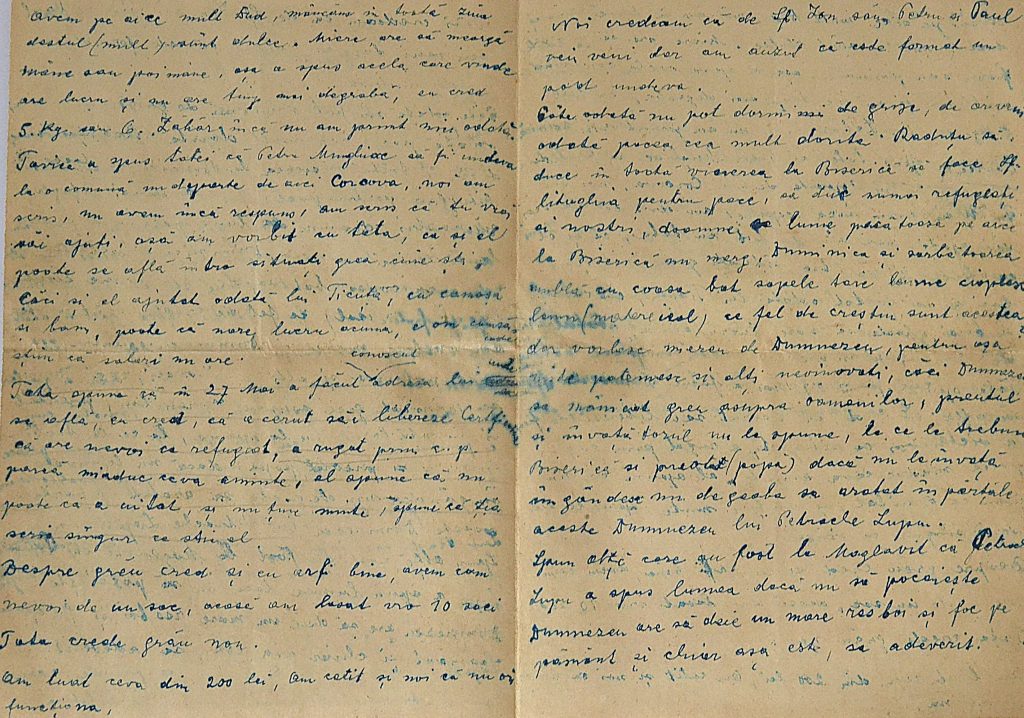 avem pe aice mult Dud, mâncam în toată ziua
destul (mult) sunt dulce. Miere are să meargă
mâne sau poimâne, așa a spus acela care vinde
are lucru și nu are timp mai degrabă, eu cred
5. kg sau 6. Zahăr încă nu am primit nici odată
a spus tatei că Petru să fi undeva
la o comună nu departe de aici Corcova, noi am
scris, nu avem încă respuns, am scris că tu vrei
săi ajuți, așă am vorbit cu tata, că și el
poate se află întro situati grea, cine ști
Căci și el ajutat odată lui Ticuță, cu camașă
si bani, poate că nare lucru acuma,
știm că salari nu are.
conoscut
Tata spune că în 27 Mai a făcut adresa lui
se află, eu cred, că a cerut săi libereze
că are nevoi ca refugiat, a rugat prin c.p.
parcă miaduc ceva aminte, el spune că nu
poate că a uitat, si nu ține minte, spune ca
scrie singur ca știu el
Despre grâu cred și cu arfi bine, avem cam
nevoi de un sac, acasă am lasat vro 10 saci
Tata crede grâu nou.
am luat ceva din 200 lei, am cetit și noi că nu or
funcționa,
Noi credeam că de Sf. Ion sau Petru și Paul
vei veni dar am auzit că este format un
pod undeva.
Câte odată nu pot dormi de grije, de
odată pacea cea mult dorită Raduțu sa
duce în toată vinerea la Biserică să face Sf.
liturghia pentru pace, să duc numai refugiati
ai noștri, doamne ce lume păcătoasă pe aice
la Biserică nu merg, Duminica si sarbătoarea
umblă cu coasa bat sapele taie lemne cioplesc
lemn (materieal) ce fel de creștini sunt acostea
dar vorbesc mereu de Dumnezeu, pentru așa
patemesc și alți nevinovati, căci Dumnezeu
sa mânieat greu asupra oamenilor, preutul
și învatătorul nu le spune, la ce le trebue
Biserică și preotul (popa) dacă nu le învată
îmgândesc nu degeaba sa aratat în părțile
aceste Dumnezeu lui Petrache Lupu.
Spun alți care au fost la Maglavit că Petrache
Lupu a spus lumea dacă nu să pocaiește
Dumnezeu are să deie un mare răsboi și foc pe
pământ și chiar așa este, sa adeverit.